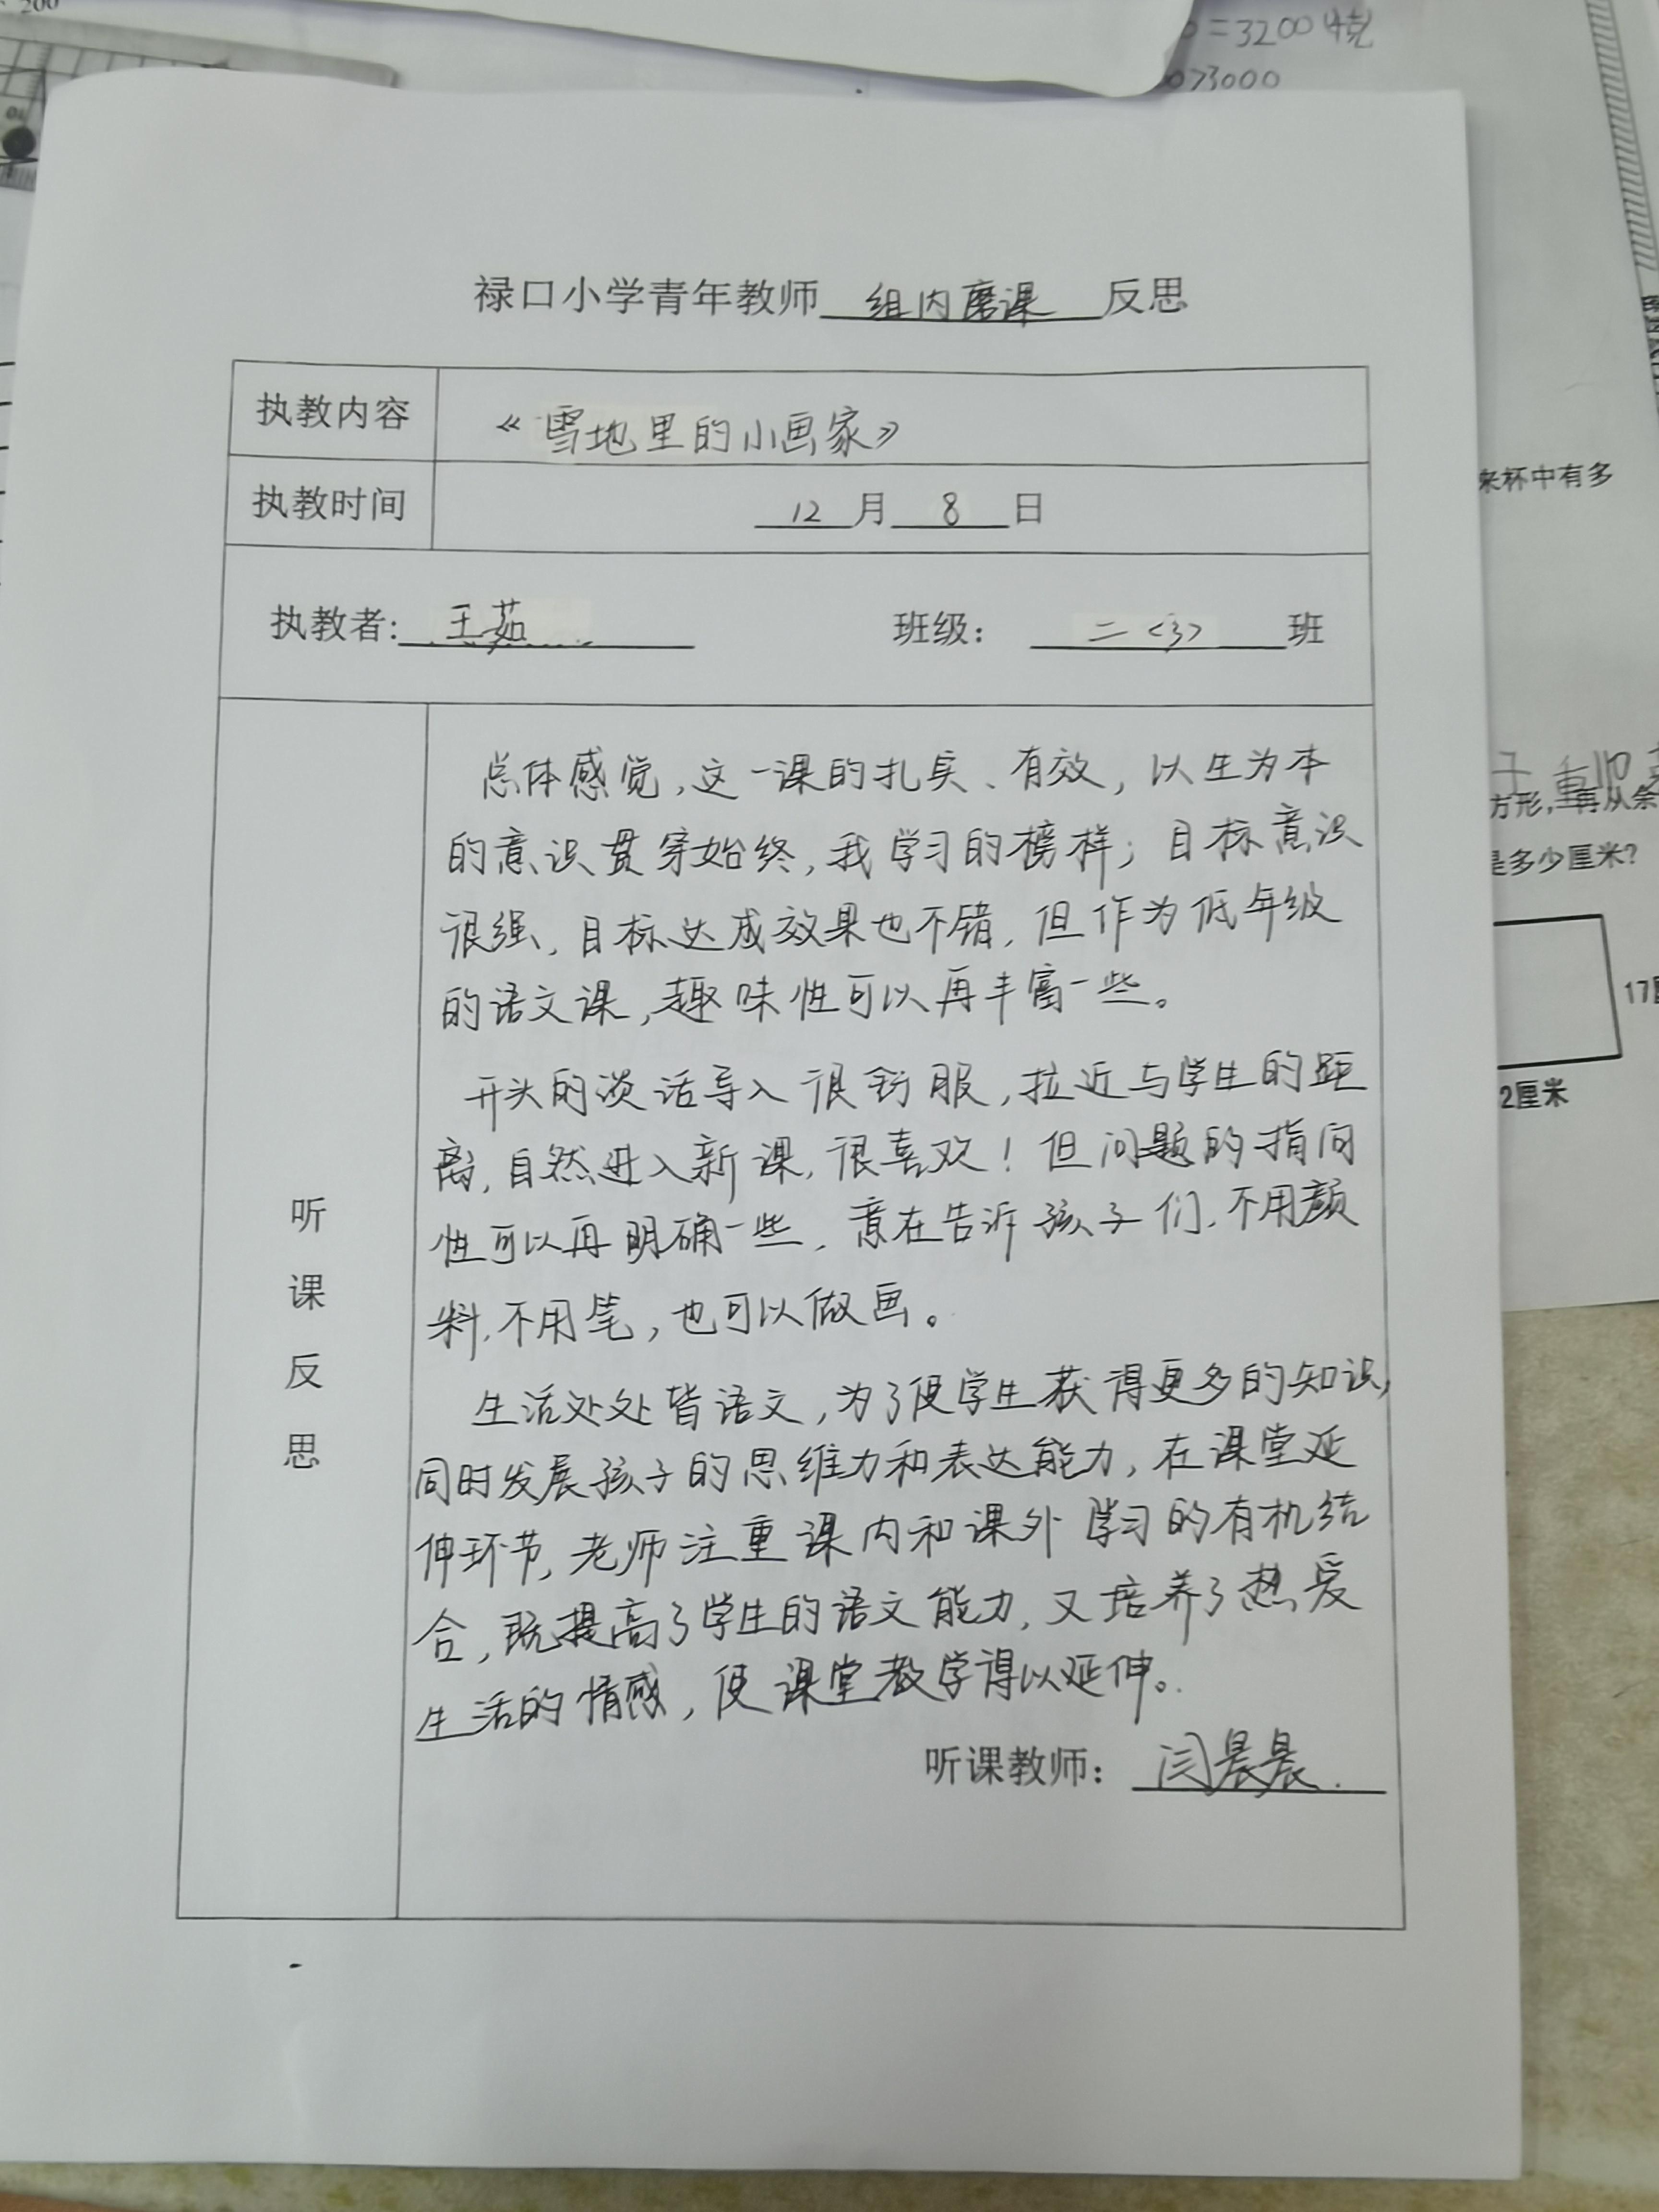 200
=3200千克
073000
禄口小学青年教师 组内磨课 反思
执教内容 《雪地里的小画家》
执教时间 12 月 8 日
来杯中有多
执教者: 王茹 班级: 二<3> 班
总体感觉,这一课的扎实、有效,以生为本
方形,再从余
的意识贯穿始终,我学习的榜样;目标意识
是多少厘米?
很强,目标达成效果也不错,但作为低年级
的语文课,趣味性可以再丰富一些。
17
开头的谈话导入很舒服,拉近与学生的距
2厘米
离,自然进入新课,很喜欢!但问题的指向
性可以再明确一些,意在告诉孩子们,不用颜
料,不用笔,也可以做画。
生活处处皆语文,为了使学生获得更多的知识,
同时发展孩子的思维力和表达能力,在课堂延
伸环节,老师注重课内和课外学习的有机结
合,既提高了学生的语文能力,又培养了热爱
生活的情感,使课堂教学得以延伸。
听
课
反
思
听课教师: 闫晨晨.